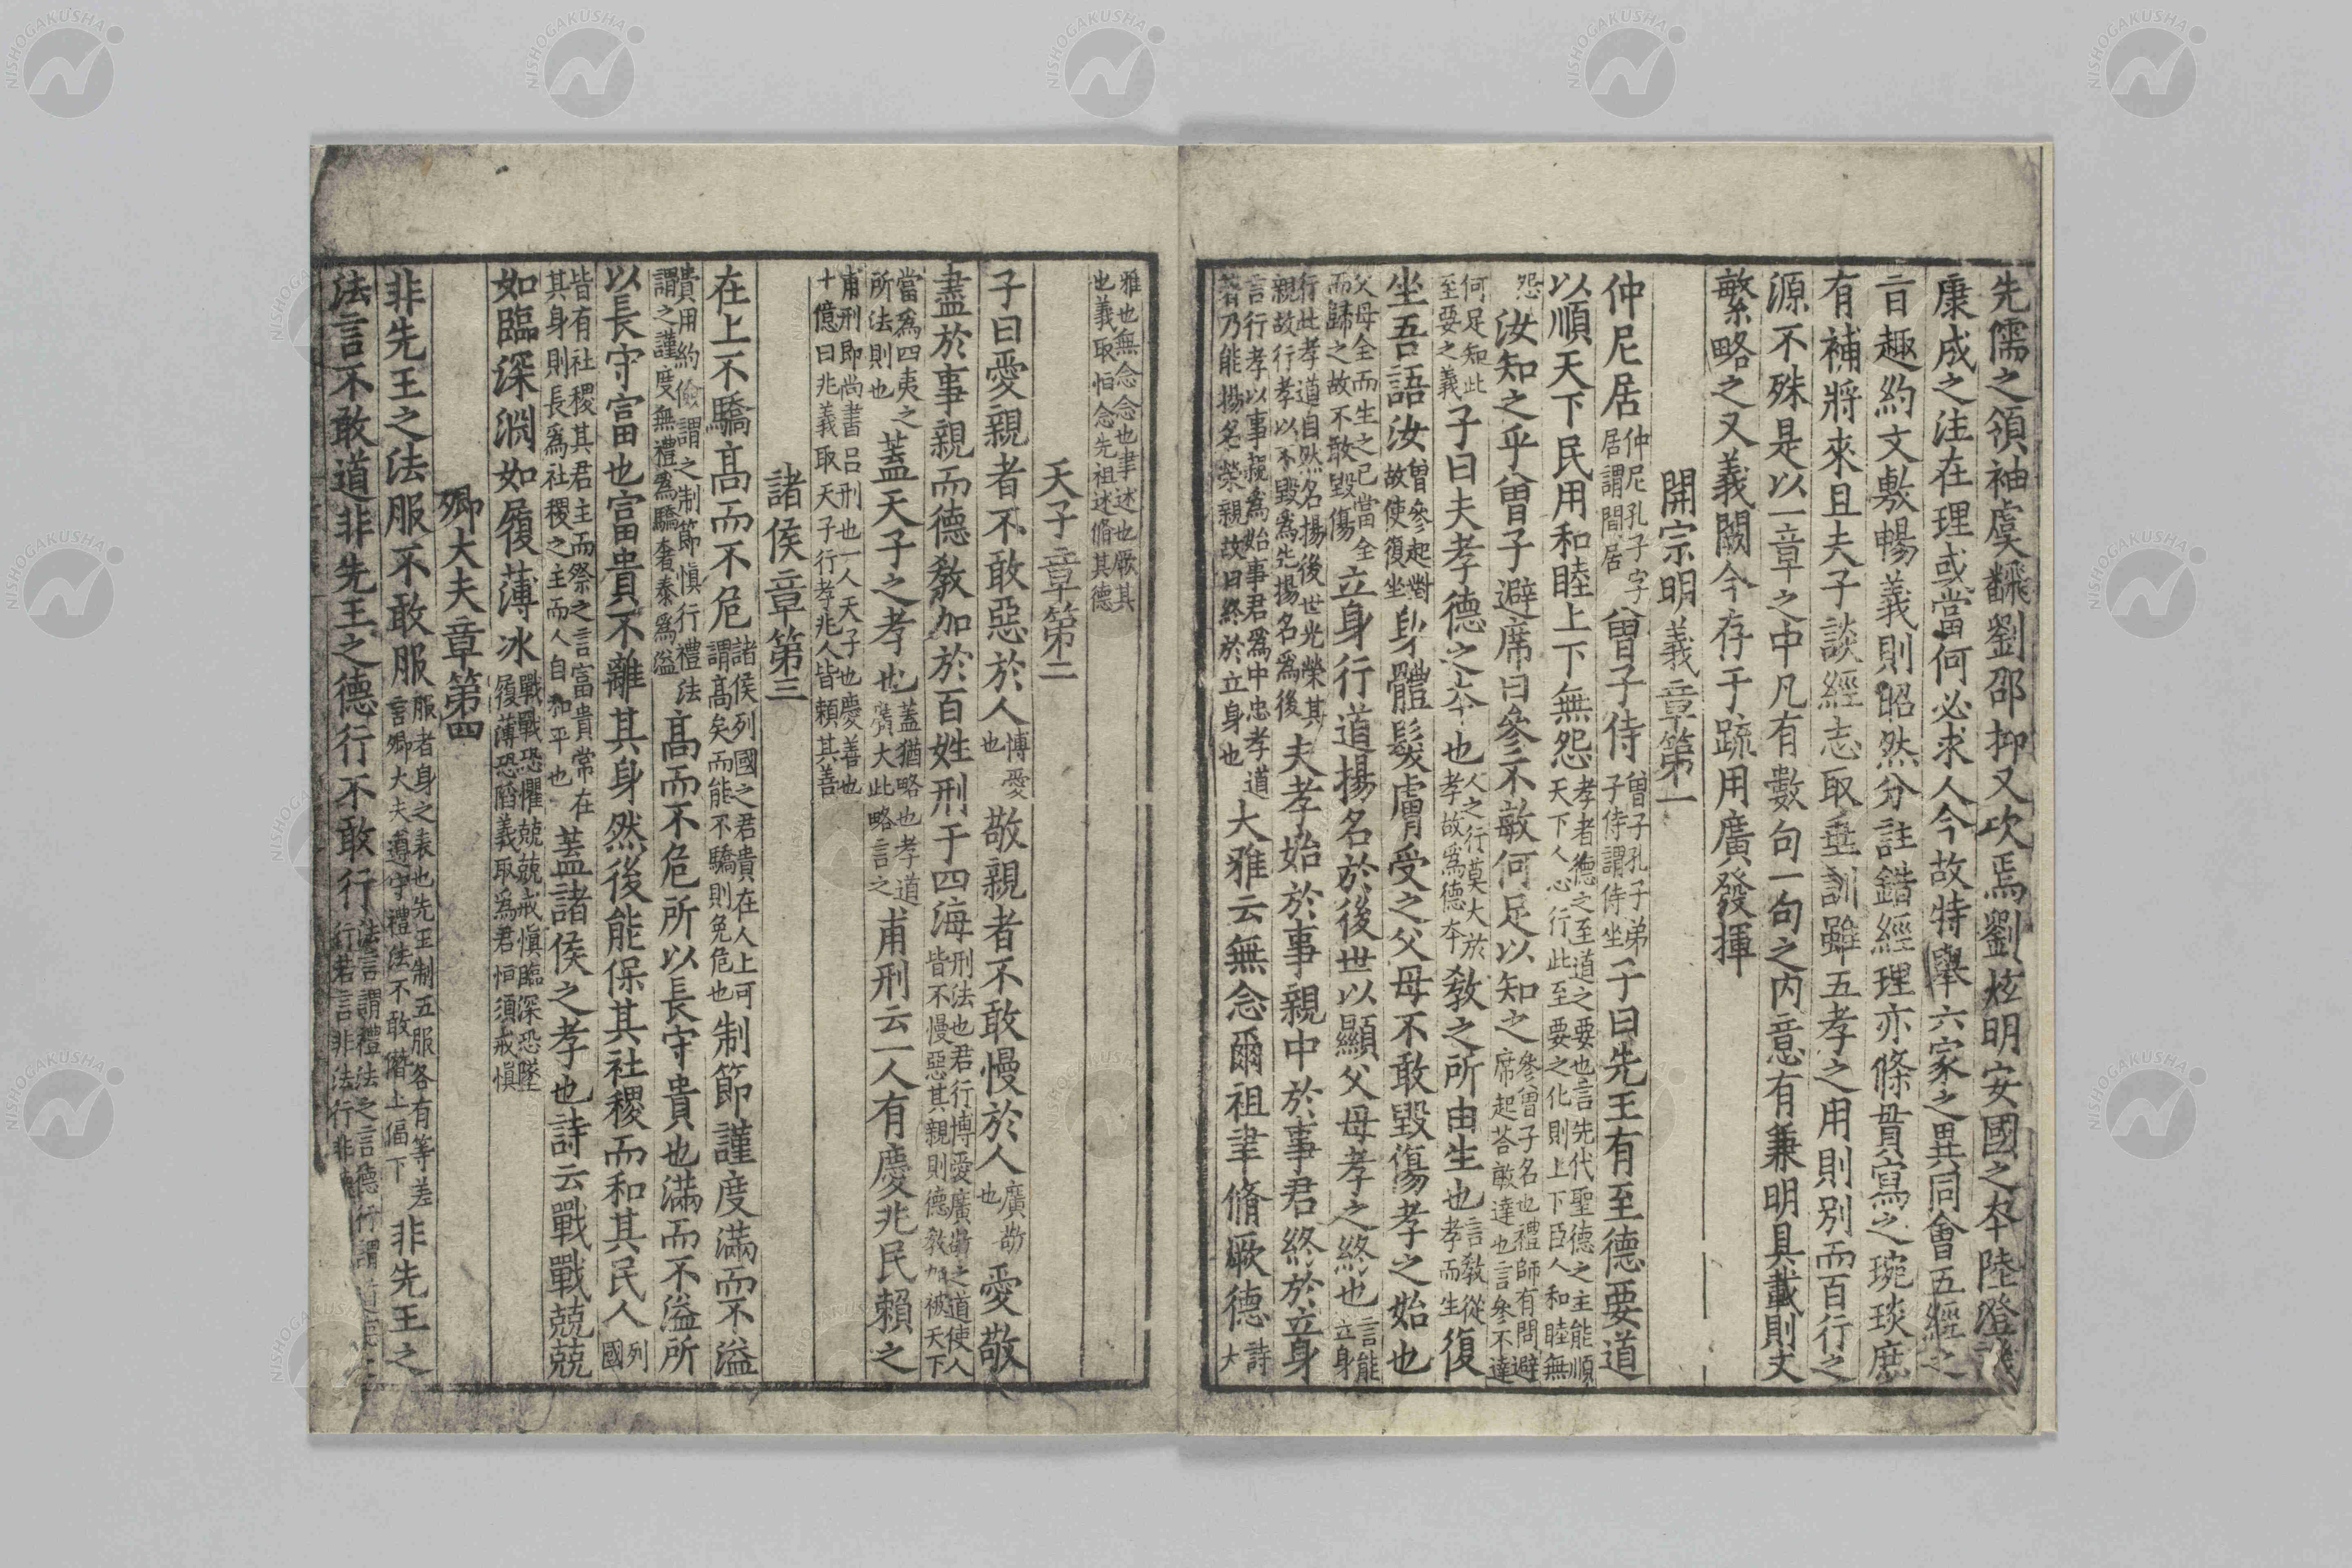 先儒之領袖虞飜劉邵抑又次焉劉炫明安國之本陸澄譏
康成之注在理或當何必求人今故特舉六家之異同會五經之
旨趣約文敷暢義則昭然分註錯經理亦條貫寫之琬琰庶
有補將來且夫子談經志取垂訓雖五孝之用則別而百行之
源不殊是以一章之中凡有數句一句之内意有兼明具載則文
繁略之又義闕今存于疏用廣發揮
開宗明義章第一
仲尼居仲尼孔子字居謂間居曾子侍曾子孔子弟子侍謂侍坐子曰先王有至德要道
以順天下民用和睦上下無怨孝者德之至道之要也言先代聖德之主能順天下人心行此至要之化則上下臣人和睦無
怨汝知之乎曾子避席曰參不敏何足以知之參曾子名也禮師有問避席起荅敢達也言參不達
何足知此至要之義子曰夫孝德之本也人之行莫大於孝故爲德本敎之所由生也言敎從孝而生復
坐吾語汝曾參起對故使復坐身體髮膚受之父母不敢毀傷孝之始也
父母全而生之已當全而歸之故不敢毀傷立身行道揚名於後世以顯父母孝之終也言能立身
行此孝道自然名揚後世光榮其親故行孝以不毀爲先揚名爲後夫孝始於事親中於事君終於立身
言行孝以事親爲始事君爲中忠孝道著乃能揚名榮親故曰終於立身也大雅云無念爾祖聿脩厥德詩大
雅也無念念也聿述也厥其也義取恒念先祖述脩其德
天子章第二
子曰愛親者不敢惡於人博愛也敬親者不敢慢於人廣敬也愛敬
盡於事親而德敎加於百姓刑于四海刑法也君行博愛廣敬之道使人皆不慢惡其親則德敎加被天下
當爲四夷之所法則也蓋天子之孝也蓋猶略也孝道廣大此略言之甫刑云一人有慶兆民賴之
甫刑即尚書呂刑也一人天子也慶善也十億曰兆義取天子行孝兆人皆賴其善
諸侯章第三
在上不驕高而不危諸侯列國之君貴在人上可謂高矣而能不驕則免危也制節謹度滿而不溢
貴用約儉謂之制節慎行禮法謂之謹度無禮爲驕奢泰爲溢高而不危所以長守貴也滿而不溢所
以長守富也富貴不離其身然後能保其社稷而和其民人列國
皆有社稷其君主而祭之言富貴常在其身則長爲社稷之主而人自和平也蓋諸侯之孝也詩云戰戰兢兢
如臨深淵如履薄冰戰戰恐懼兢兢戒慎臨深恐墜履薄恐陷義取爲君恒須戒慎
卿大夫章第四
非先王之法服不敢服服者身之表也先王制五服各有等差言卿大夫遵守禮法不敢僭上偪下非先王之
法言不敢道非先王之德行不敢行法言謂禮法之言德行謂行若言非法行非